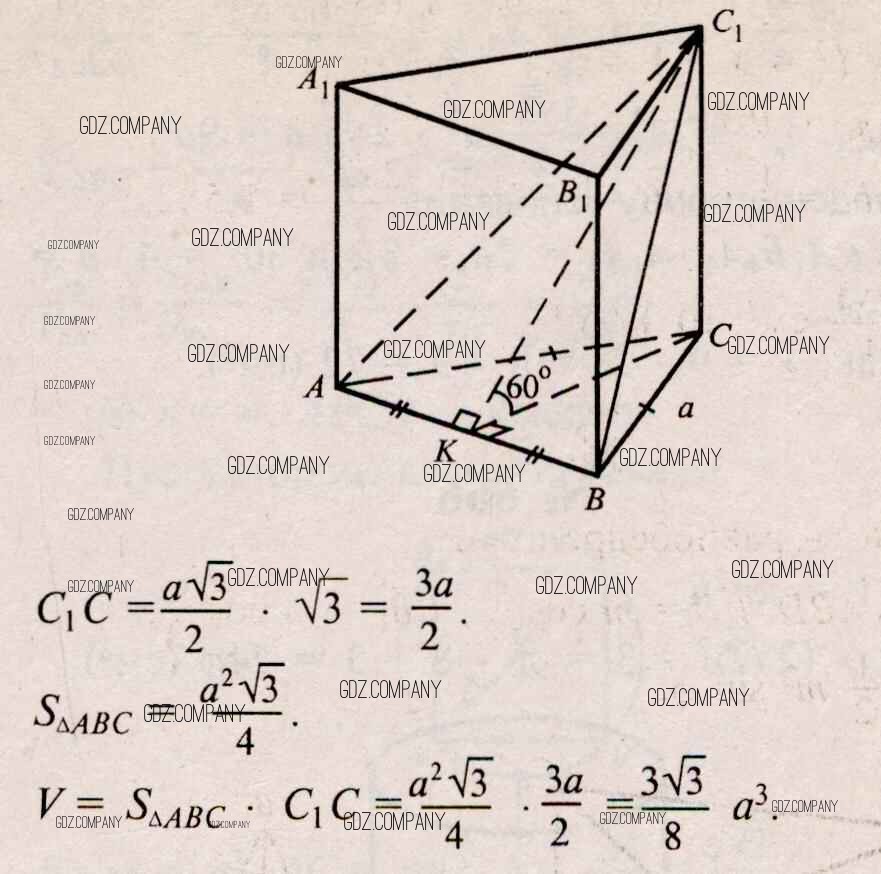 C₁
GDZ.COMPANY
A₁
GDZ.COMPANY
GDZ.COMPANY
GDZ.COMPANY
B₁
GDZ.COMPANY
GDZ.COMPANY
GDZ.COMPANY
GDZ.COMPANY
GDZ.COMPANY
C
GDZ.COMPANY
GDZ.COMPANY
GDZ.COMPANY
A
60°
GDZ.COMPANY
a
GDZ.COMPANY
K
GDZ.COMPANY
GDZ.COMPANY
GDZ.COMPANY
B
GDZ.COMPANY
GDZ.COMPANY
GDZ.COMPANY
GDZ.COMPANY
GDZ.COMPANY
C₁C = a√3/2 · √3 = 3a/2.
GDZ.COMPANY
GDZ.COMPANY
GDZ.COMPANY
S△ABC = a²√3/4.
V = S△ABC · C₁C = a²√3/4 · 3a/2 = 3√3/8 a³.
GDZ.COMPANY
GDZ.COMPANY
GDZ.COMPANY
GDZ.COMPANY
GDZ.COMPANY